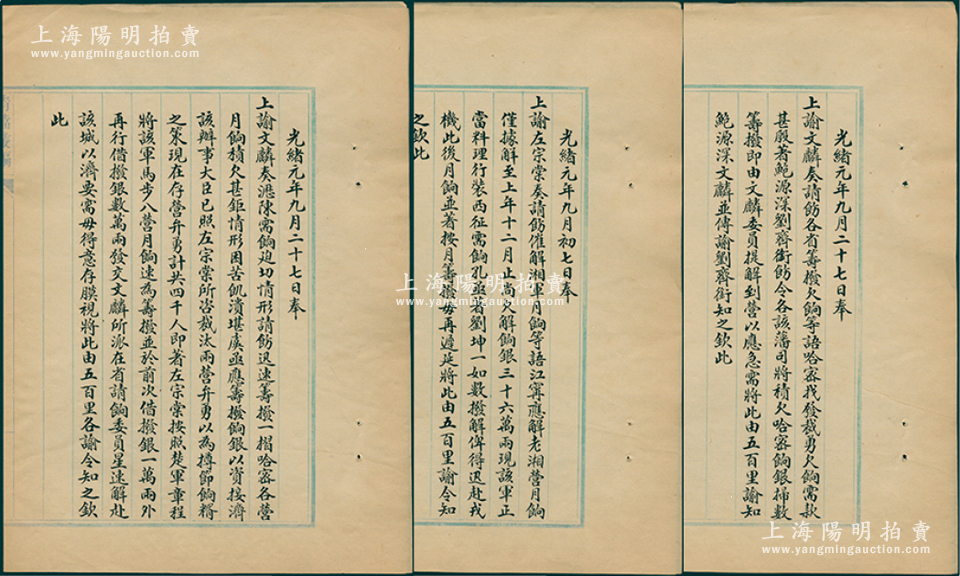 上海陽明拍賣
www.yangmingauction.com
光緒元年九月二十七日奉
上諭文麟奏請飭各省籌撥欠餉等語哈密找發裁勇欠餉需款
甚殷著鮑源深劉齊銜飭令各該藩司將積欠哈密餉銀掃數
籌撥即由文麟委員提解到營以應急需將此由五百里諭知
鮑源深文麟並傳諭劉齊銜知之欽此
光緒元年九月初七日奉
上諭左宗棠奏請飭催解湘軍月餉等語江寧應解老湘營月餉
僅據解至上年十二月止尚欠解餉銀三十六萬兩現該軍正
當料理行裝西征需餉孔亟著劉坤一如數撥解俾得迅赴戎
機此後月餉並著按月籌撥毋再遲延將此由五百里諭令知
之欽此
光緒元年九月二十七日奉
上諭文麟奏瀝陳需餉迫切情形請飭迅速籌撥一摺哈密各營
月餉積欠甚鉅情形困苦飢潰堪虞亟應籌撥餉銀以資接濟
該辦事大臣已照左宗棠所咨裁汰兩營弁勇以為樽節餉糈
之策現在存營弁勇計共四千人即著左宗棠按照楚軍章程
將該軍馬步八營月餉速為籌撥並於前次借撥銀一萬兩外
再行借撥銀數萬兩發交文麟所派在省請餉委員星速解赴
該城以濟要需毋得意存膜視將此由五百里各諭令知之欽
此
上海陽明拍賣
www.yangmingauction.com
上海陽明拍賣
www.yangmingauction.com